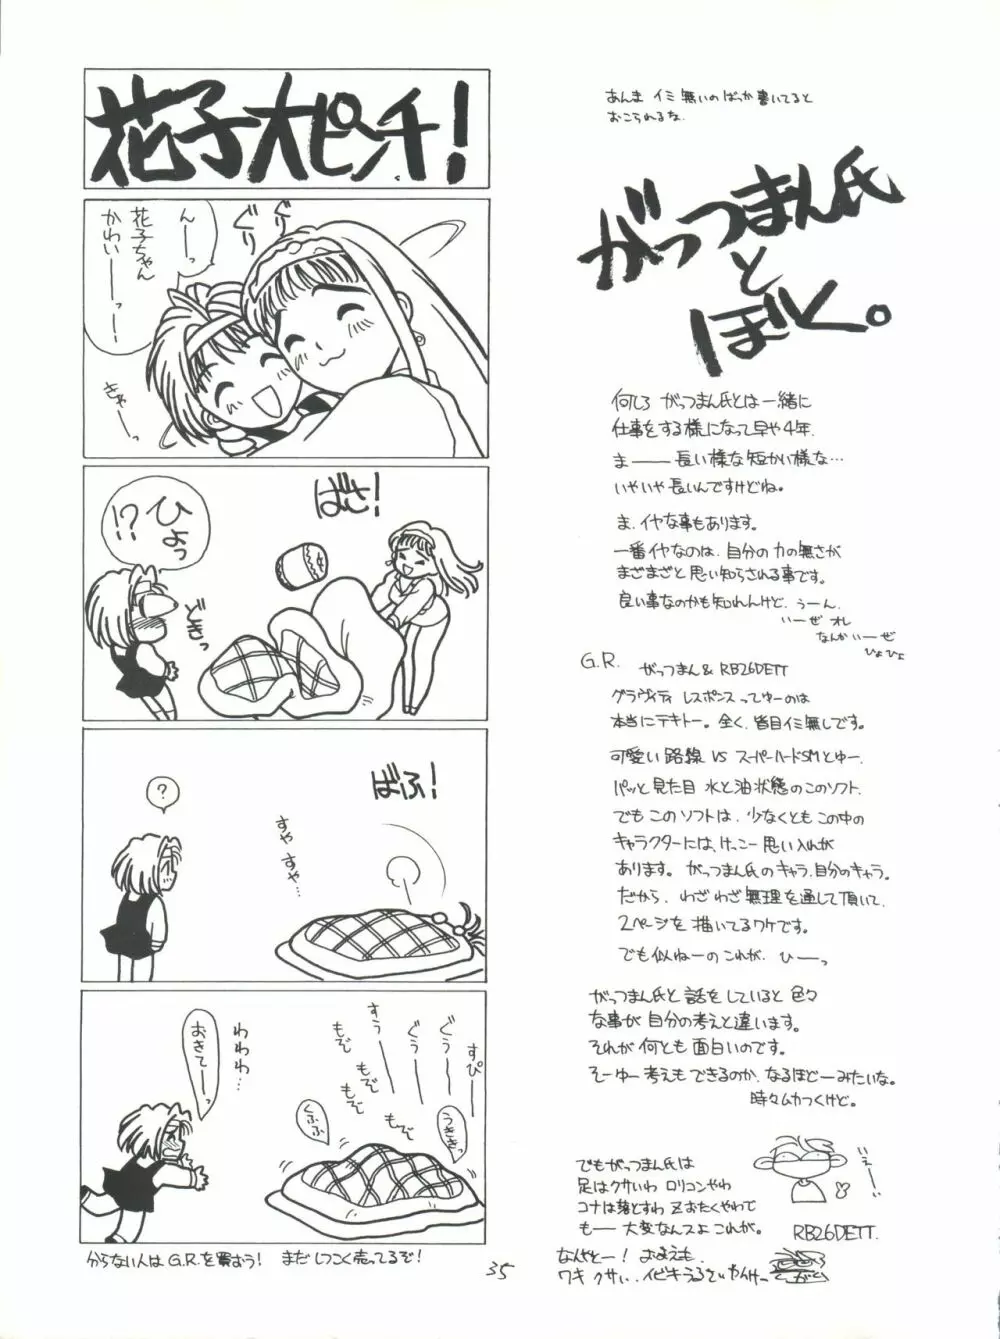 花子大ピンチ！
んーっ
花子ちゃん
かわいーっー
ぐりぐり
きゃーっ
ばさ！
ひょっ
!?
どきっ
ばふ！
？
すや すや…
すぴー
ぐぅー
ぐぅー
すぅー
もぞ
もぞ
もぞ
もぞ
もぞ
わわわ…
おきてーっ
うききっ
くふふ
分からない人は G.R.を買おう！ まだしつこく売ってるぞ！
35
あんま イミ無いのばっか書いてると
おこられるな.
がっつまん氏
と
ぼく。
何しろ がっつまん氏とは一緒に
仕事をする様になって早や4年.
ま――長い様な短かい様な…
いやいや長いんですけどね。
ま、イヤな事もあります。
一番イヤなのは、自分の力の無さが
まざまざと思い知らされる事です。
良い事なのかも知れんけど、うーん、
いーぜ オレ
なんかいーぜ
ひょひょ
G.R. がっつまん & RB26DETT
グラヴィティ レスポンスってゆーのは
本当にテキトー。全く、皆目イミ無しです。
可愛い路線 VS スーパーハードSMとゆー、
パッと見た目 水と油状態のこのソフト、
でもこのソフトは、少なくともこの中の
キャラクターには、けっこー思い入れが
あります。がっつまん氏のキャラ、自分のキャラ。
だから、わざわざ無理を通して頂いて、
2ページを描いてるワケです。
でも似ねーのこれが、ひーっ
がっつまん氏と話をしていると色々
な事が自分の考えと違います。
それが何とも面白いのです。
そーゆー考えもできるのか、なるほどーみたいな。
時々ムカつくけど。
でもがっつまん氏は
足はクサいわ ロリコンやわ
コナは落とすわ Zおたくやわで
もー大変なんスよこれが。
いえーい
RB26DETT.
なんやとー！おまえも、
ワキ クサい、イビキうるさいやんけー